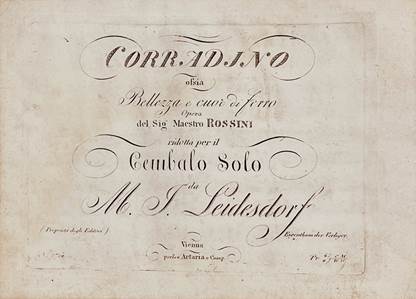 CORRADINO
ossia
Bellezza e cuor di ferro
Opera
del Sigr Maestro ROSSINI
ridotta per il
Cembalo Solo
da
M. J. Leidesdorf
(Proprietà degli Editori)
Eigenthum der Verleger.
Vienna
presso Artaria e Comp.
Pr.